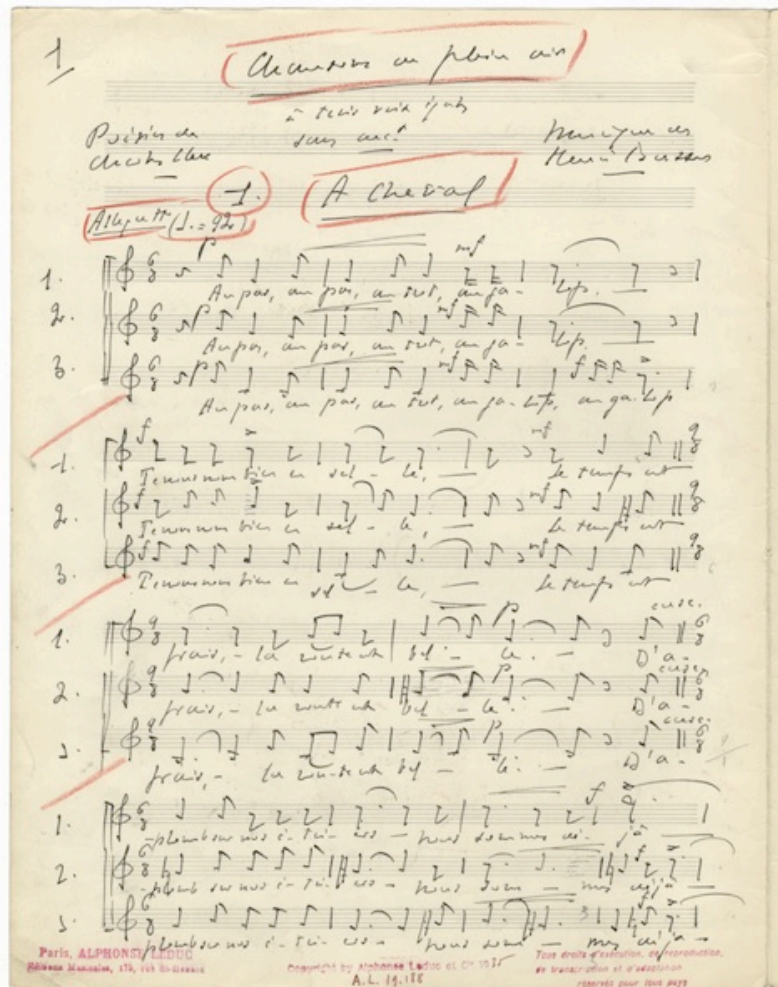 1
Chansons en plein air
à trois voix égales
sans acct
Poésies de
Charles Clerc
Musique de
Henri Busser
1.
A Cheval
Allegretto (♩. = 92)
p mf
1.
Au pas, au pas, au trot, au ga- lop. —
p mf
2.
Au pas, au pas, au trot, au ga- lop. —
p mf f
3.
Au pas, au pas, au trot, au ga-lop, au ga-lop
f mf
1.
Tenons nous bien en sel – le, — le temps est
f mf
2.
Tenons nous bien en sel – le, — le temps est
f mf
3.
Tenons nous bien en sel – le, — le temps est
p cresc.
1.
frais, – la route est bel – le. — D'a-
p cresc.
2.
frais, – la route est bel – le. — D'a-
p cresc.
3.
frais, – la route est bel – le. — D'a-
f
1.
-plomb sur nos é-tri- ers – nous sommes dé- jà
f
2.
-plomb sur nos é-tri- ers – nous som – mes déjà –
f
3.
-plomb sur nos é-tri- ers – nous som – mes déjà –
Paris, ALPHONSE LEDUC
Editions Musicales, 175, rue St-Honoré
Copyright by Alphonse Leduc et Cie 1935
A.L. 19.188
Tous droits d'exécution, de reproduction,
de transcription et d'adaptation
réservés pour tous pays